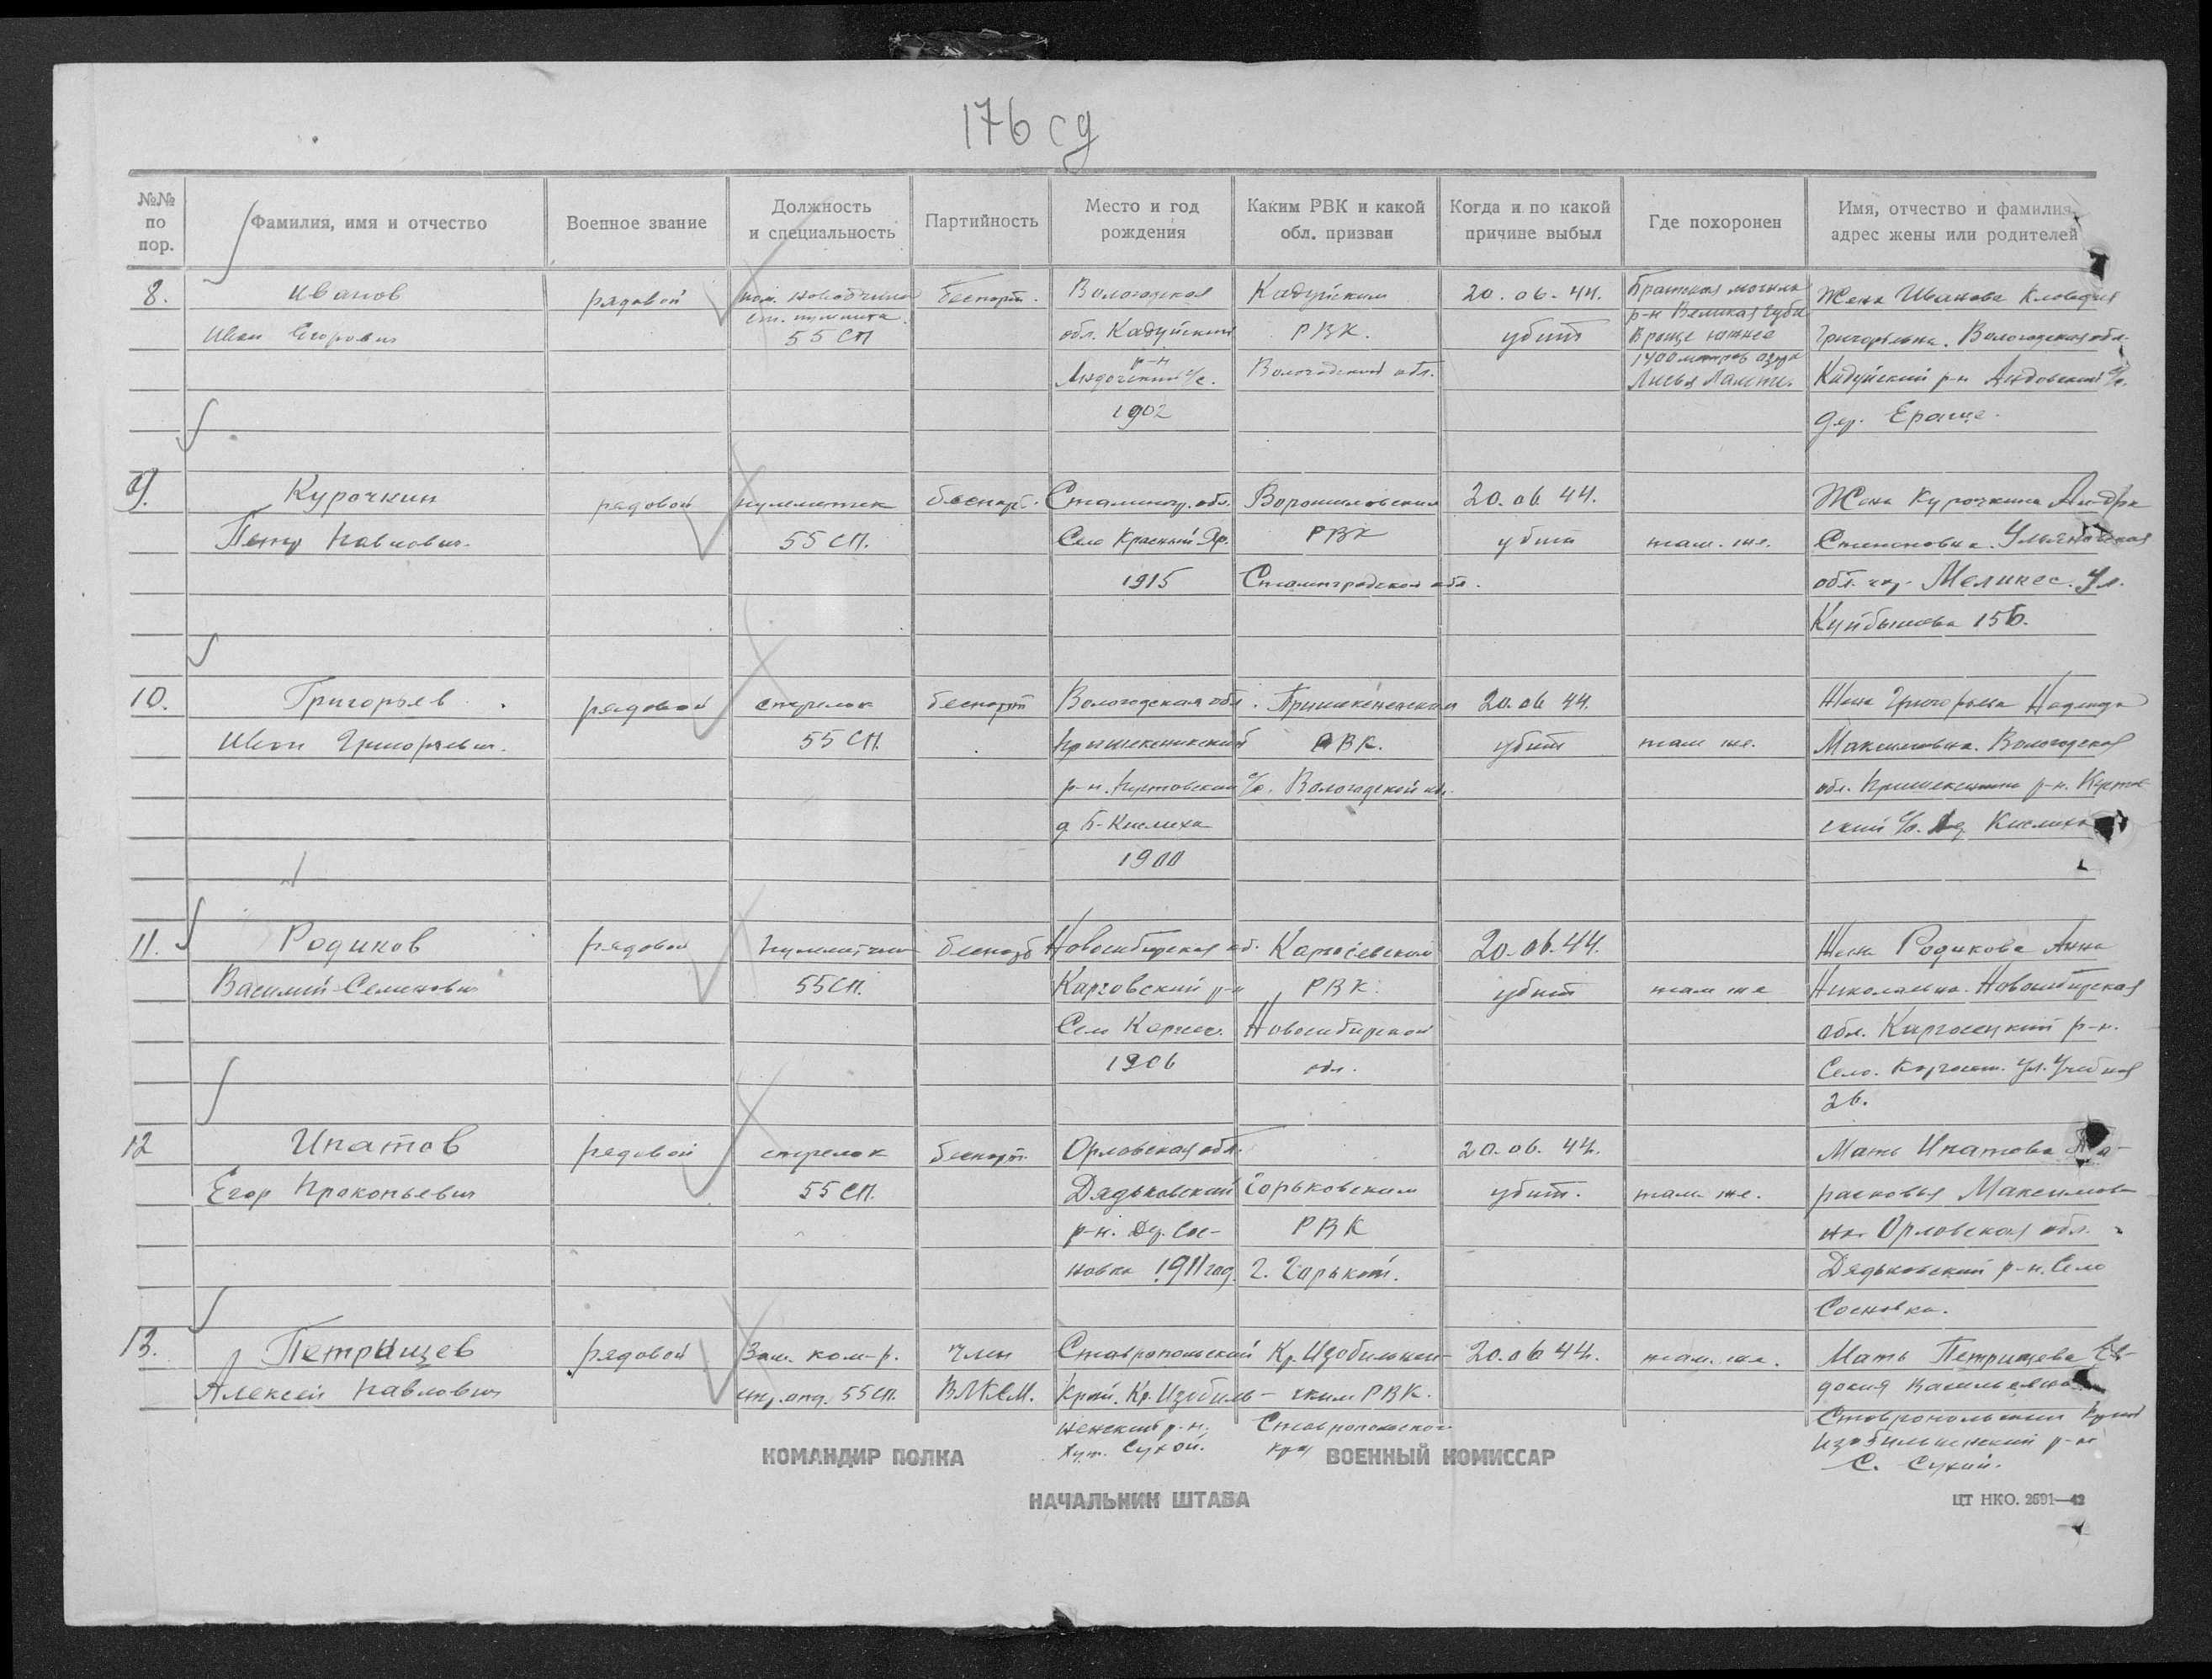 176 сд
№№ по пор.
Фамилия, имя и отчество
Военное звание
Должность и специальность
Партийность
Место и год рождения
Каким РВК и какой обл. призван
Когда и по какой причине выбыл
Где похоронен
Имя, отчество и фамилия, адрес жены или родителей
8. Иванов рядовой пом. беспарт. Вологодская Кадуйским 20.06.44. Братская могила Жена Иванова Клавдия
ст. пулемета р-н Великая Губа
Иван Егорович 55 СП обл. Кадуйский РВК. убит В роще южнее Григорьевна. Вологодская обл.
р-н 1400 метров
с/с. Вологодской обл. Кадуйский р-н с/с.
1902 дер.
9. Курочкин рядовой беспарт. Сталингр. обл. Ворошиловским 20.06 44. Жена Курочкина
Петр Павлович 55 СП. Село Красный Яр. РВК убит там-же. Ульяновская
1915 Сталинградская обл. обл. Мелекес. Ул.
Куйбышева 156.
10. Григорьев рядовой стрелок беспарт Вологодская обл. 20.06 44. Жена Григорьева Надежда
Иван Григорьевич. 55 СП. РВК. убит там же. Максимовна. Вологодская
р-н. с/с. Вологодской обл. обл. р-н.
д Б-Кислиха ский с/с. Кислиха
1900
11. Родиков рядовой беспарт Новосибирская об. 20.06.44. Жена Родикова Анна
Василий Семенович 55 СП. р-н РВК. убит там же Николаевна. Новосибирская
Село Новосибирской обл. р-н.
1906 обл. Село. ул. Учебная
26.
12 Ипатов рядовой стрелок беспарт. Орловская обл. 20.06.44. Мать Ипатова Па-
Егор Прокопьевич 55 СП. Дядьковский Горьковским убит. там-же. расковья Максимов
р-н. Дер. Сос- РВК на Орловская обл.
новка 1911 год. г. Горький. Дядьковский р-н. Село
Сосновка.
13. Петрищев рядовой Зам. ком-р. член Ставропольский Кр. Изобильнен- 20.06 44. там-же. Мать Петрищева Ев-
Алексей Павлович стр. отд. 55 СП. ВЛКСМ. край. Кр. Изобиль- ским РВК. докия Васильевна
ненский р-н; Ставропольского Ставропольский край
Хут. Сухой. кра Изобильненский р-н
С. Сухой.
КОМАНДИР ПОЛКА
ВОЕННЫЙ КОМИССАР
НАЧАЛЬНИК ШТАБА
ЦТ НКО. 2691—42